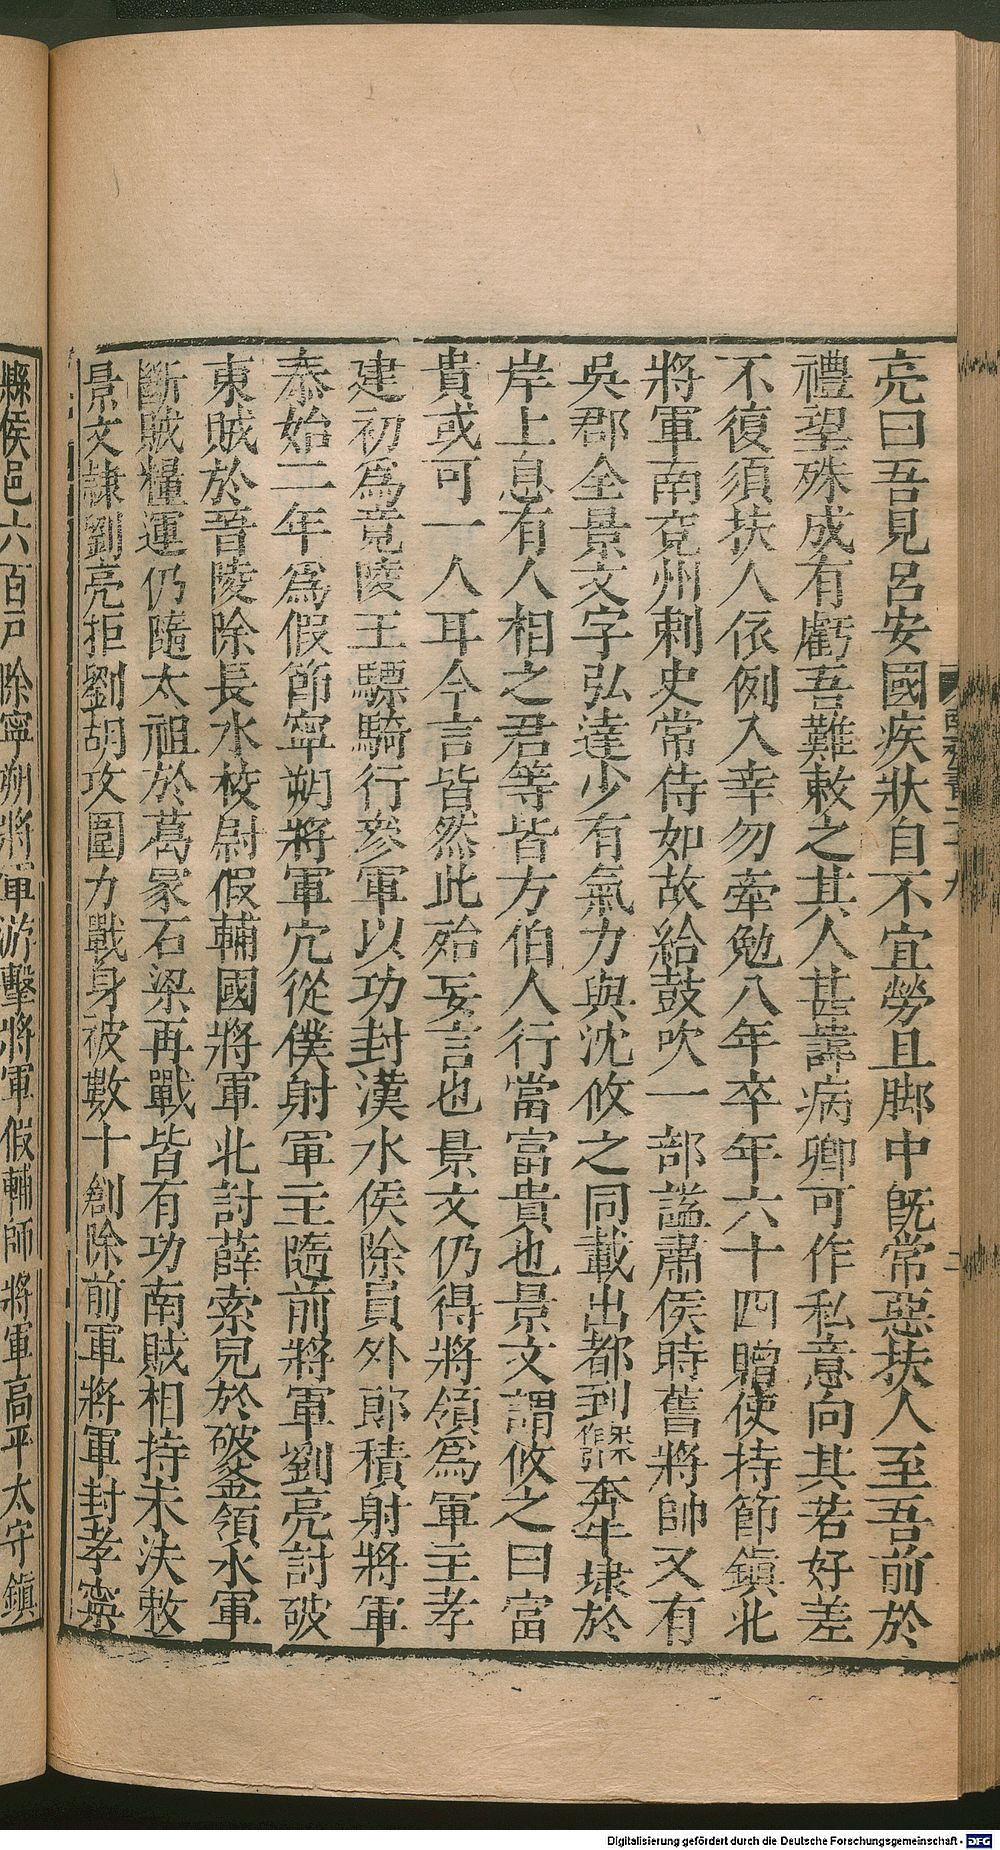 亮曰吾見呂安國疾狀自不宜勞且脚中旣常惡扶人至吾前於
禮望殊成有虧吾難敕之其人甚諱病卿可作私意向其若好差
不復須扶人依例入幸勿牽勉八年卒年六十四贈使持節鎮北
將軍南兗州刺史常侍如故給鼓吹一部諡肅侯時舊將帥又有
吳郡全景文字弘達少有氣力與沈攸之同載出都到宋本作引奔牛埭於
岸上息有人相之君等皆方伯人行當富貴也景文謂攸之曰富
貴或可一人耳今言皆然此殆妄言也景文仍得將領爲軍主孝
建初爲竟陵王驃騎行參軍以功封漢水侯除員外郎積射將軍
泰始二年爲假節寧朔將軍宂從僕射軍主隨前將軍劉亮討破
東賊於晉陵除長水校尉假輔國將軍北討薛索兒於破釜領水軍
斷賊糧運仍隨太祖於葛冢石梁再戰皆有功南賊相持未決敕
景文隷劉亮拒劉胡攻圍力戰身被數十創除前軍將軍封孝寧
縣侯邑六百戶除寧朔將軍游擊將軍假輔師將軍高平太守鎮
南齊書二十九
二
Digitalisierung gefördert durch die Deutsche Forschungsgemeinschaft - DFG